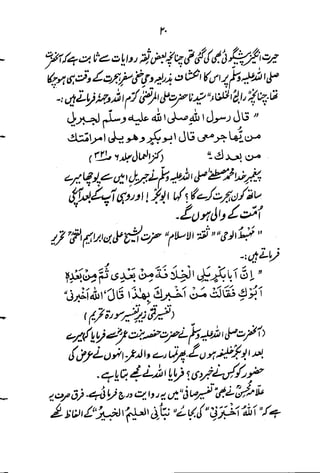 ۲۰
حیرت انگیز پیشگوئی بھی کی گئی تھی چنانچہ بعض ثقہ روایات سے ثابت ہے کہ آنحضرت
صلی اللہ علیہ وسلم پر اس کا انکشاف بذریعہ وحی خفی سفر ہجرت کے وقت ہی ہو چکا
تھا۔ چنانچہ رابع الخلفاء سیدنا حضرت علی المرتضیٰ کرم اللہ وجہہ فرماتے ہیں :۔
" قال رسول اللہ صلی اللہ علیہ وسلم لجبریل
من یهاجر معی قال ابوبکر وهو یلی امر امتك
من بعدك "
(کنز العمال جلد ۶ ص۳۲۱)
پیغمبر خدا محمد مصطفےٰ صلی اللہ علیہ وسلم نے جبریل امیں سے پوچھا میرے
ساتھ کون ہجرت کرے گا ؟ کہا ابوبکر ! اور وہی آپ کے بعد آپکی
اُمت کے والی ہوں گے۔
" مہبط الوحی " " ثقۃ الاسلام " حضرت الشیخ علی بن ابراہیم القمی تحریر
فرماتے ہیں :۔
" اِنَّ اَبَا بَكْرٍ يَلِي الْخِلَافَةَ مِنْ بَعْدِي ثُمَّ مِنْ بَعْدِهٖ
اَبُوْكِ فَقَالَتْ مَنْ اَخْبَرَكَ بِهٰذَا قَالَ اللهُ اَخْبَرَنِيْ "
(تفسیر قمی زیر تفسیر سورۃ تحریم)
(آنحضرت صلی اللہ علیہ وسلم نے حضرت حفصہ بنت عمر سے فرمایا کہ میرے
بعد ابوبکر خلیفہ ہوں گے پھر تمہارے والد عمر۔ انہوں نے عرض کی
حضور کو کس نے خبر دی؟ فرمایا اللہ نے مجھے بتایا ہے۔
علامہ محسن نے بھی " تفسیر صافی " میں یہ روایت درج فرمائی ہے۔ فرق صرف یہ
ہے کہ " اَللّٰهُ اَخْبَرَنِيْ " کی بجائے " نَبَّاَنِيَ الْعَلِيْمُ الْخَبِيْرُ " کے الفاظ لکھے